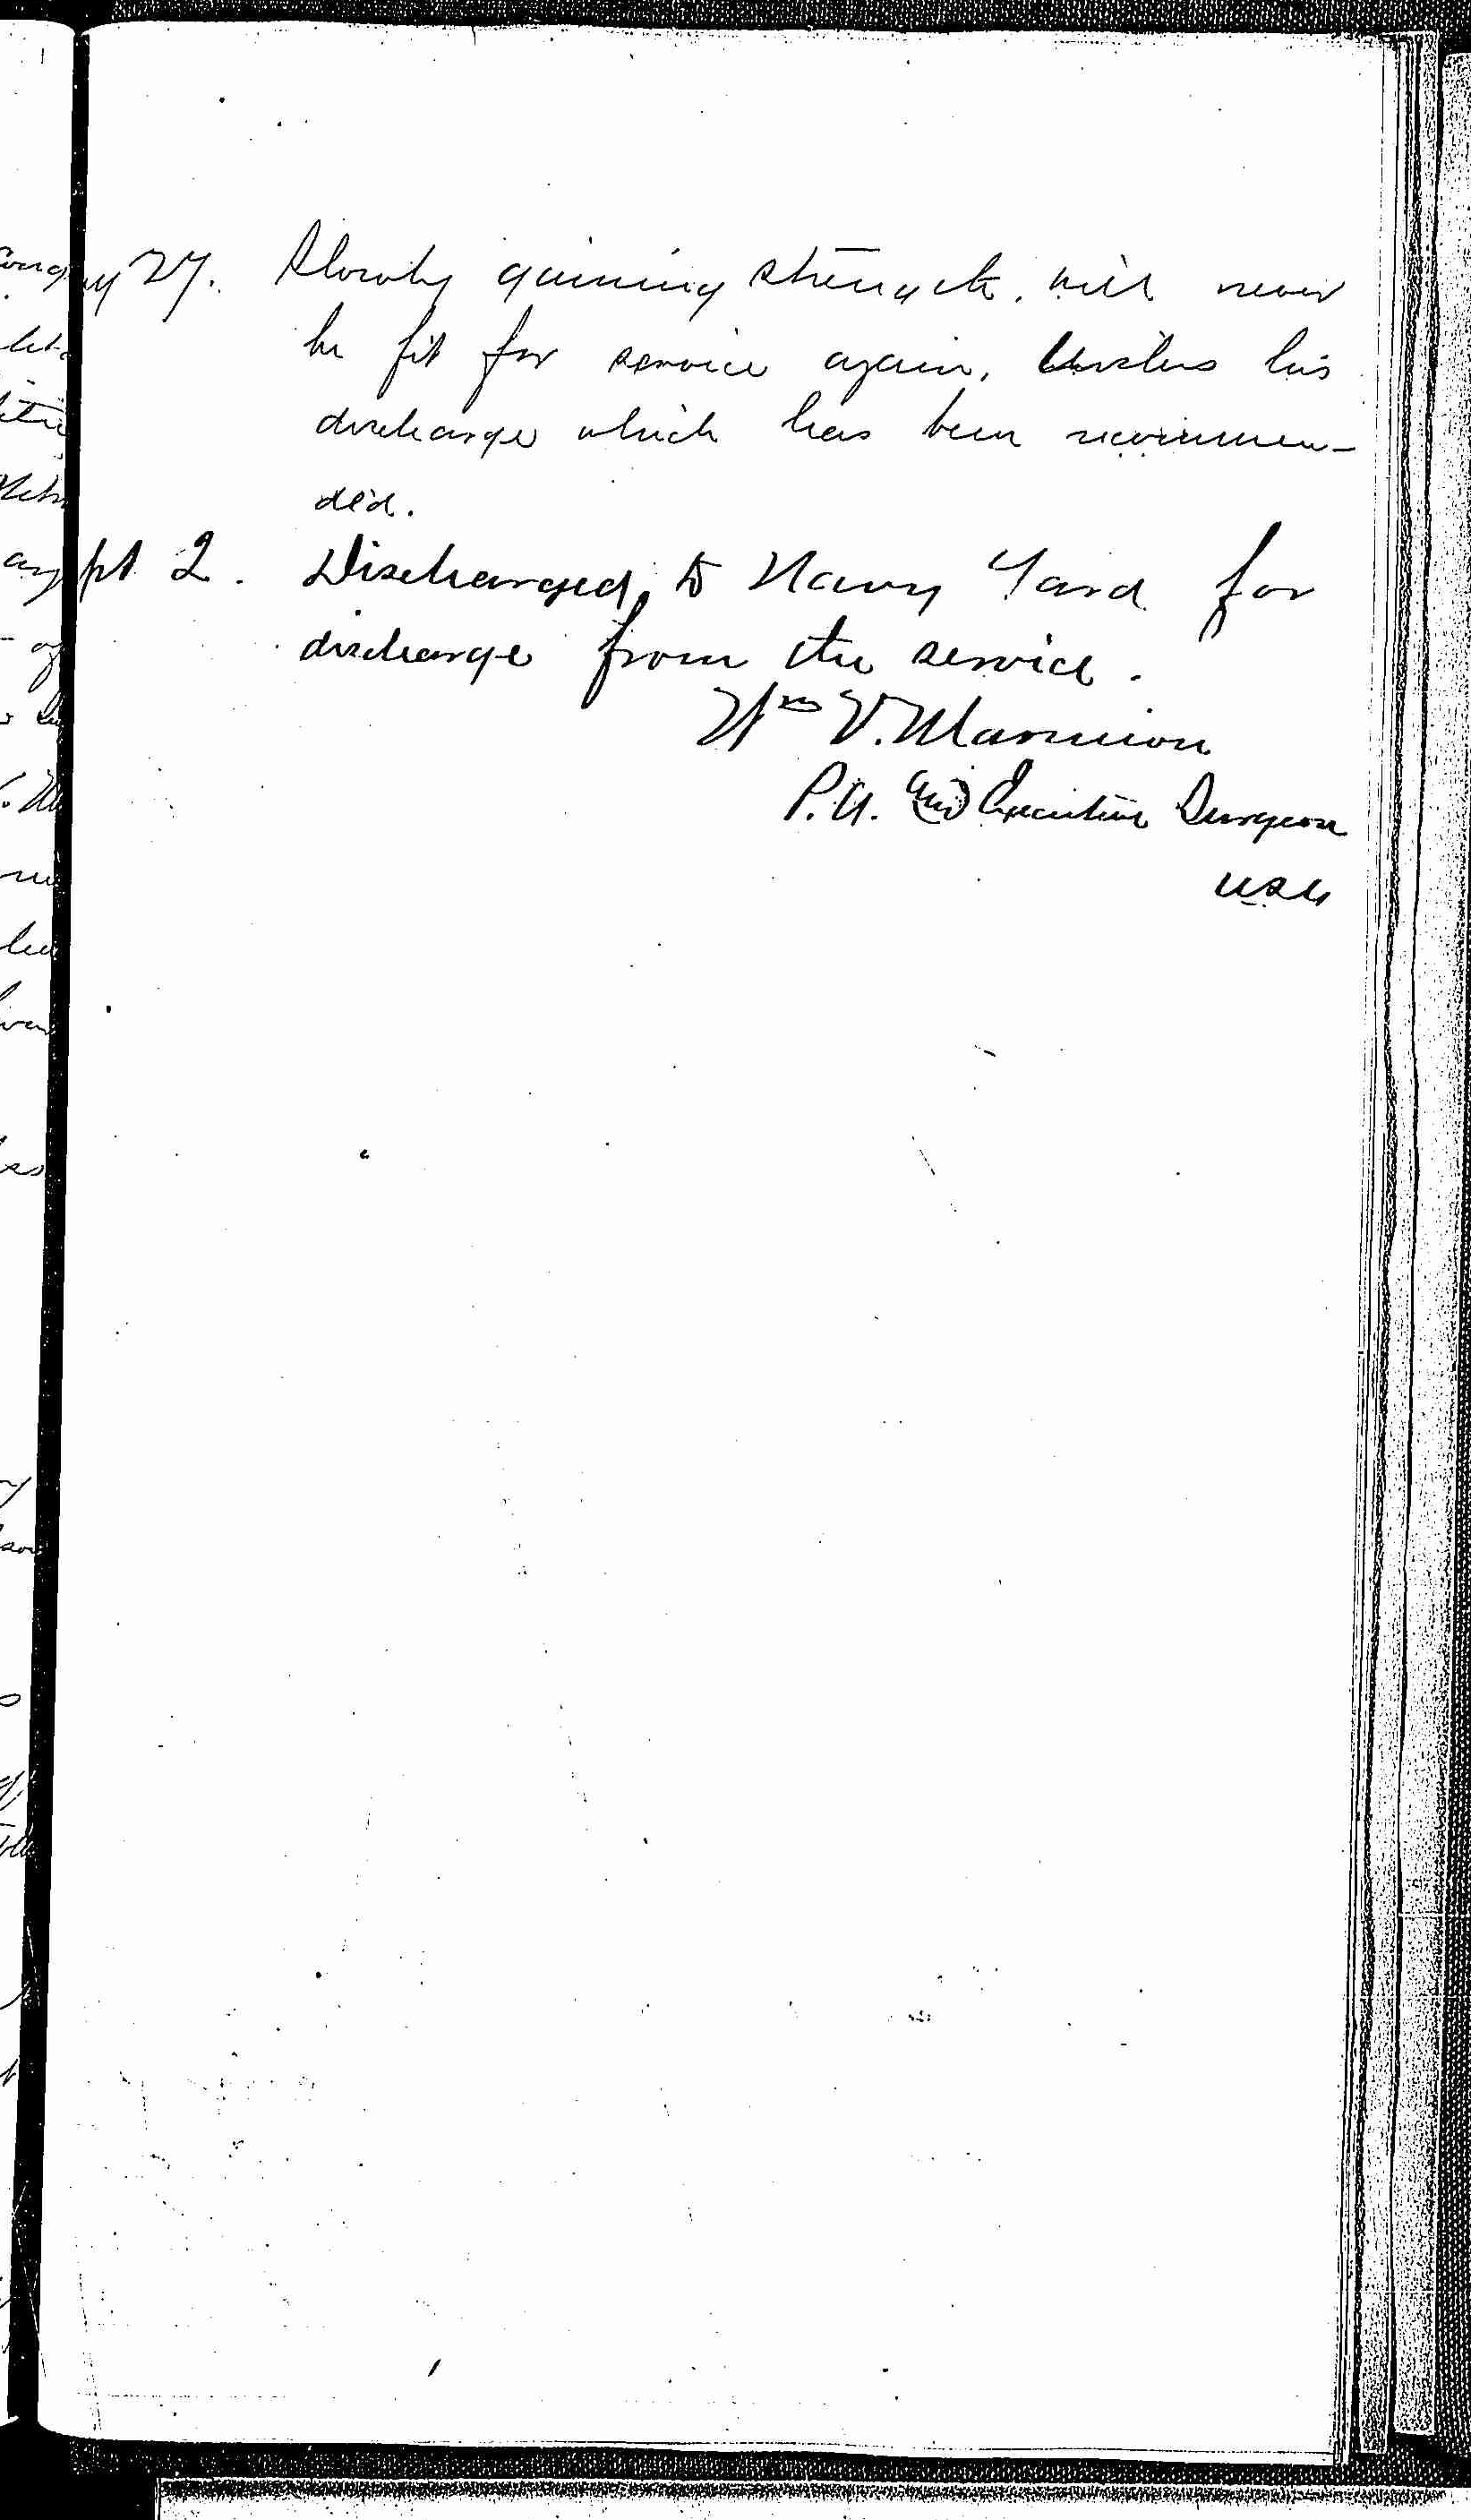 ug 27. Slowly gaining strength. will never
be fit for service again. Wishes his
discharge which has been recommen-
ded.
pt 2. Discharged to Navy Yard for
discharge from the service.
Wm V. Marmion
P.A. and Executive Surgeon
USN